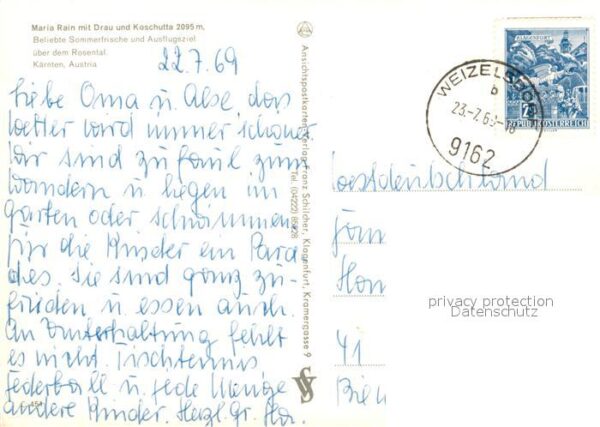 Maria Rain mit Drau und Koschutta 2095 m,
Beliebte Sommerfrische und Ausflugsziel
über dem Rosental.
Kärnten, Austria
22.7.69
Liebe Oma u. Alse, das
Wetter wird immer schöner
Wir sind zu faul zum
Wandern u. liegen im
Garten oder schwimmen.
Für die Kinder ein Para
dies. Sie sind ganz zu-
frieden u essen auch.
An Unterhaltung fehlt
es nicht. Tischtennis
Federball u jede Menge
andere Kinder. Herzl. Gr.
Ansichtspostkarten-Verlag Franz Schilcher, Klagenfurt, Kramergasse 9
Tel. (04222) 85928
KLAGENFURT
REPUBLIK ÖSTERREICH
WEIZELSDORF
b
23.-7.69-18
9162
Westdeutschland
41
privacy protection
Datenschutz